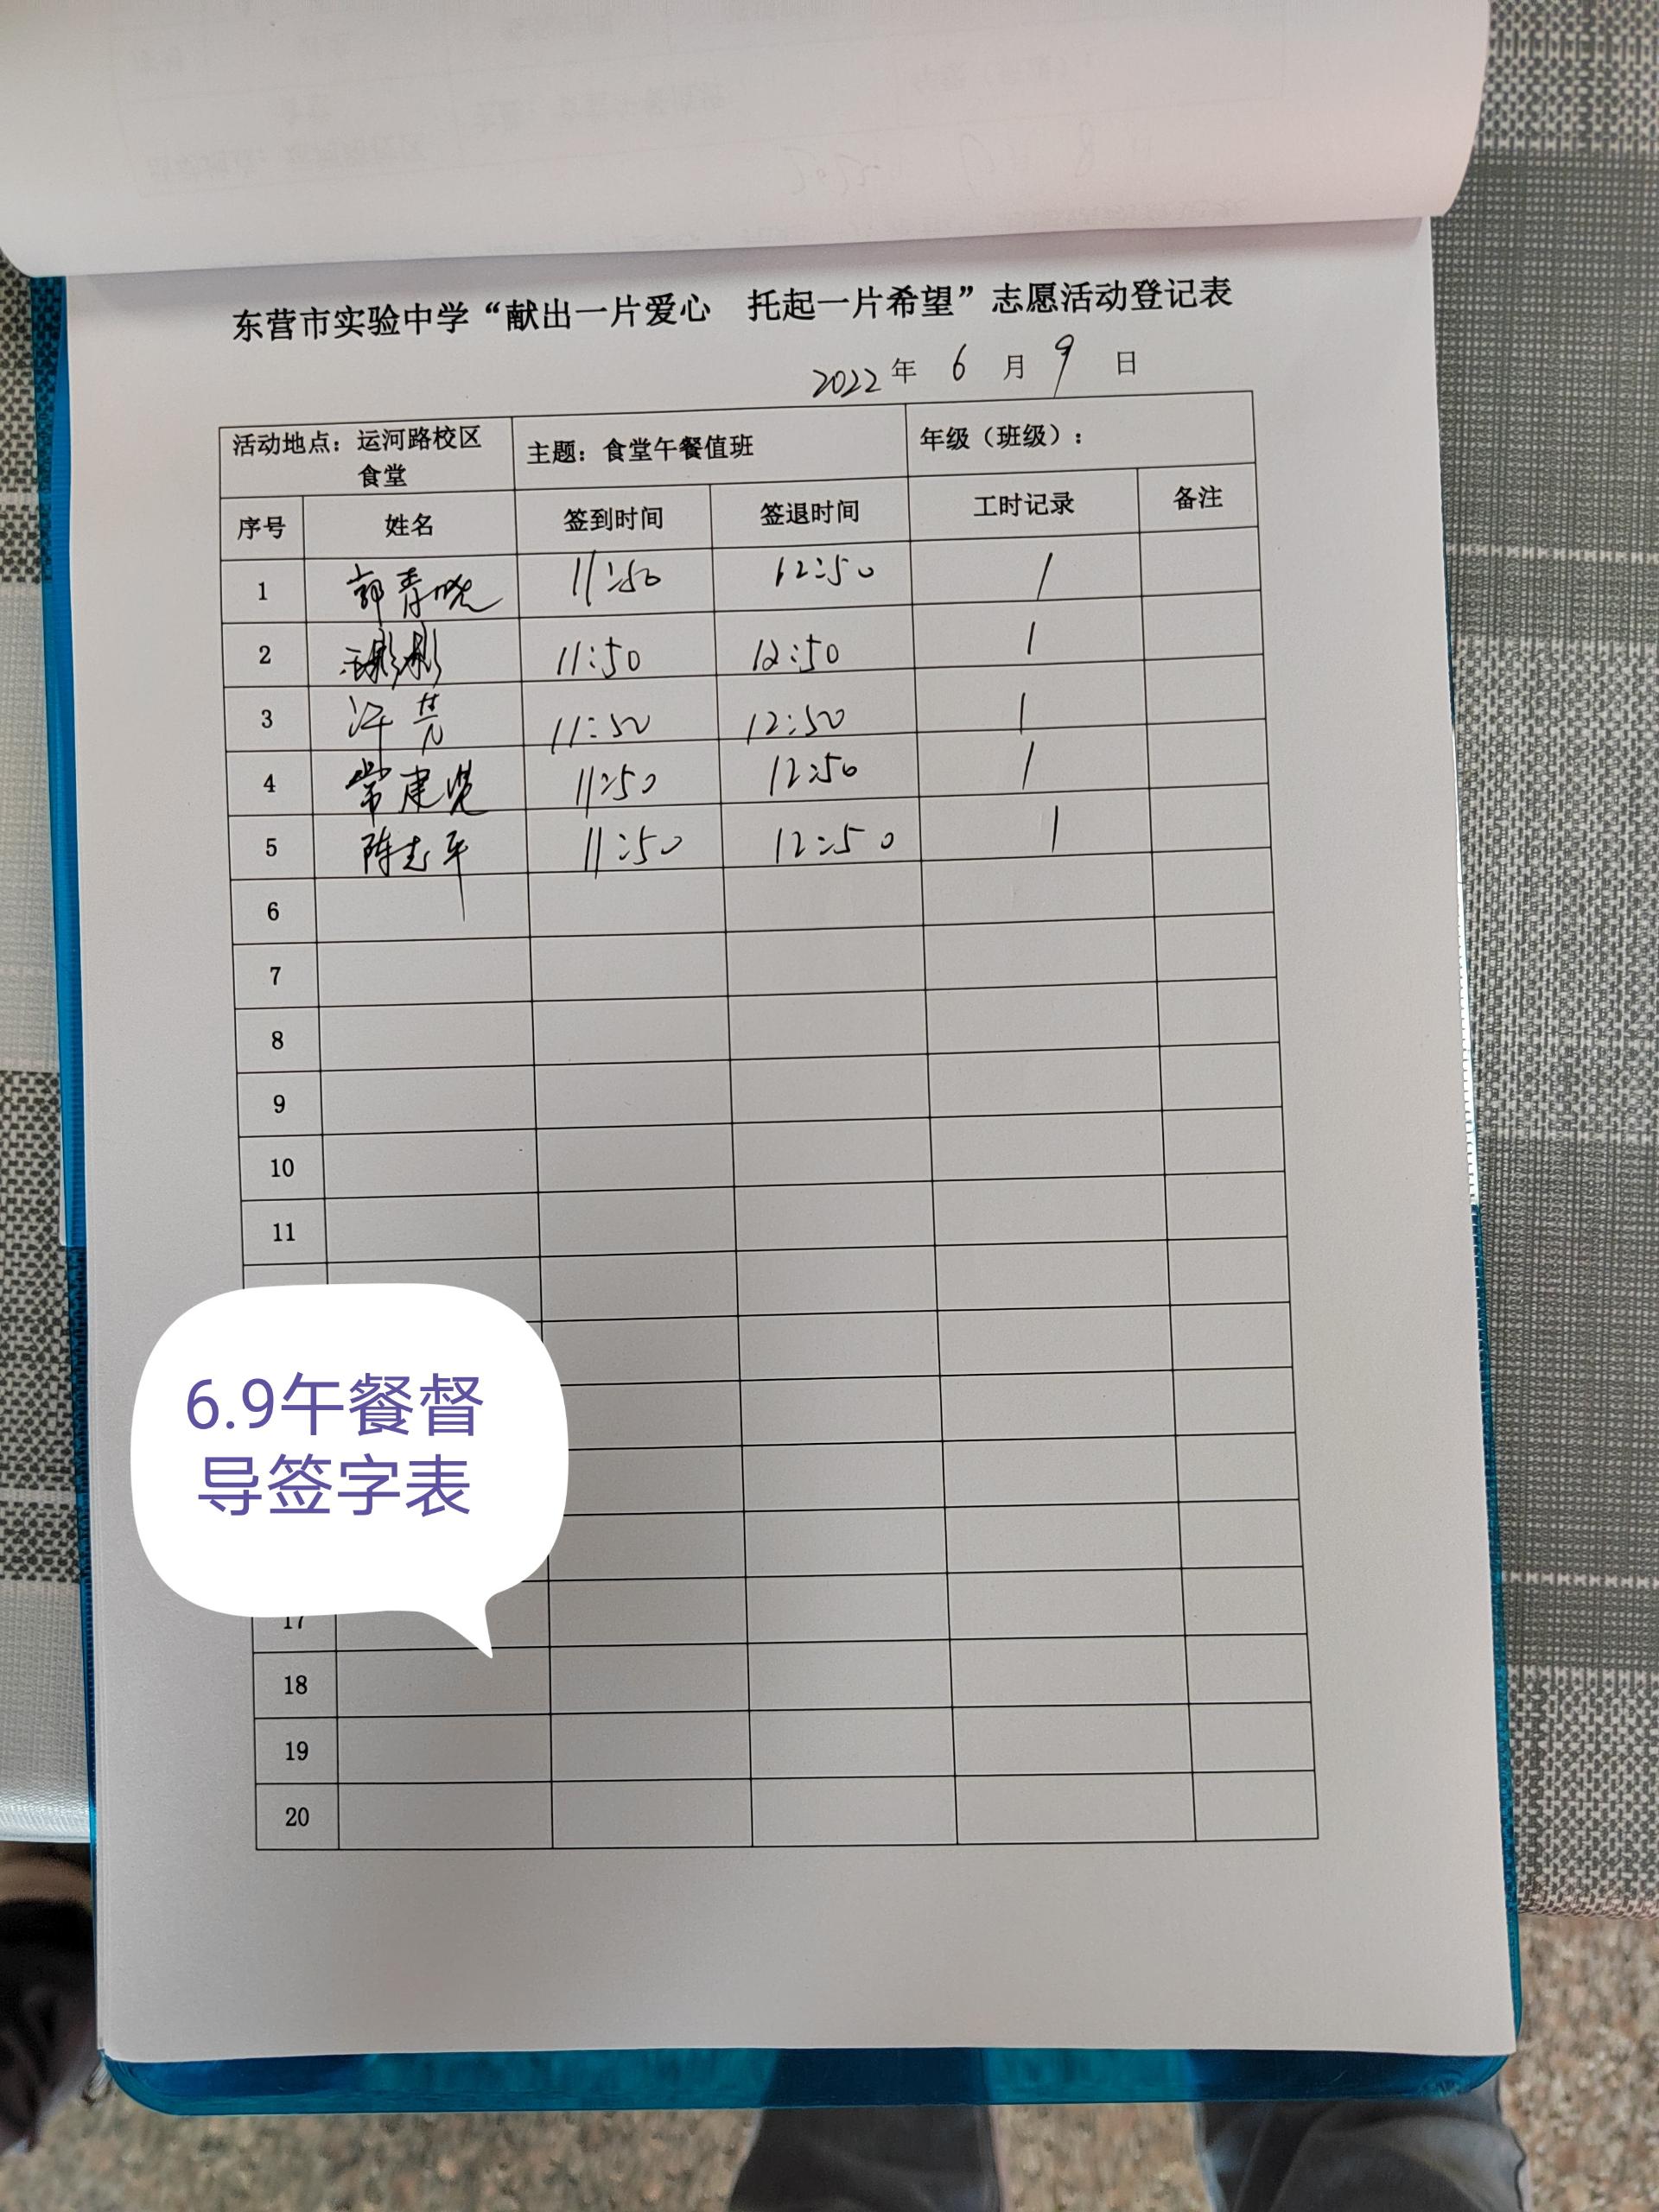 东营市实验中学“献出一片爱心 托起一片希望”志愿活动登记表
2022年 6 月 9 日
活动地点：运河路校区食堂 主题：食堂午餐值班 年级（班级）：
序号 姓名 签到时间 签退时间 工时记录 备注
1 郭青晓 11:50 12:50 1
2 11:50 12:50 1
3 11:50 12:50 1
4 常建 11:50 12:50 1
5 陈志平 11:50 12:50 1
6
7
8
9
10
11
6.9午餐督
导签字表
17
18
19
20